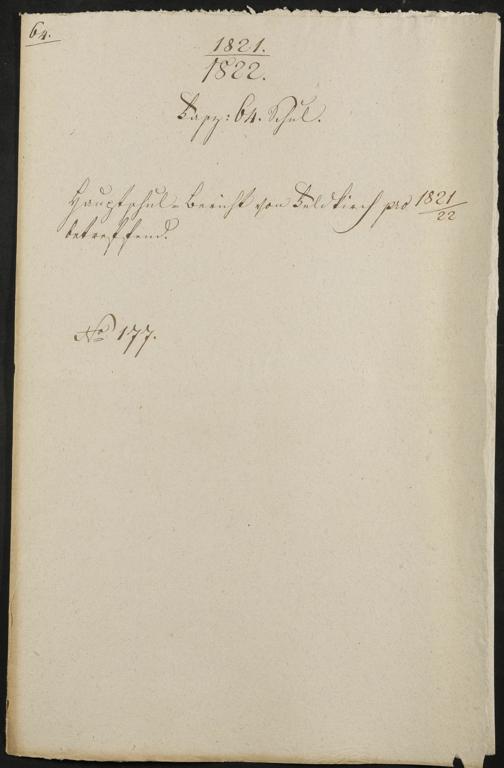 64.
1821.
1822.
Fasz: 64. Schul.
Hauptschul-Bericht von Feldkirch pro 1821/22
betreffend.
No 177.